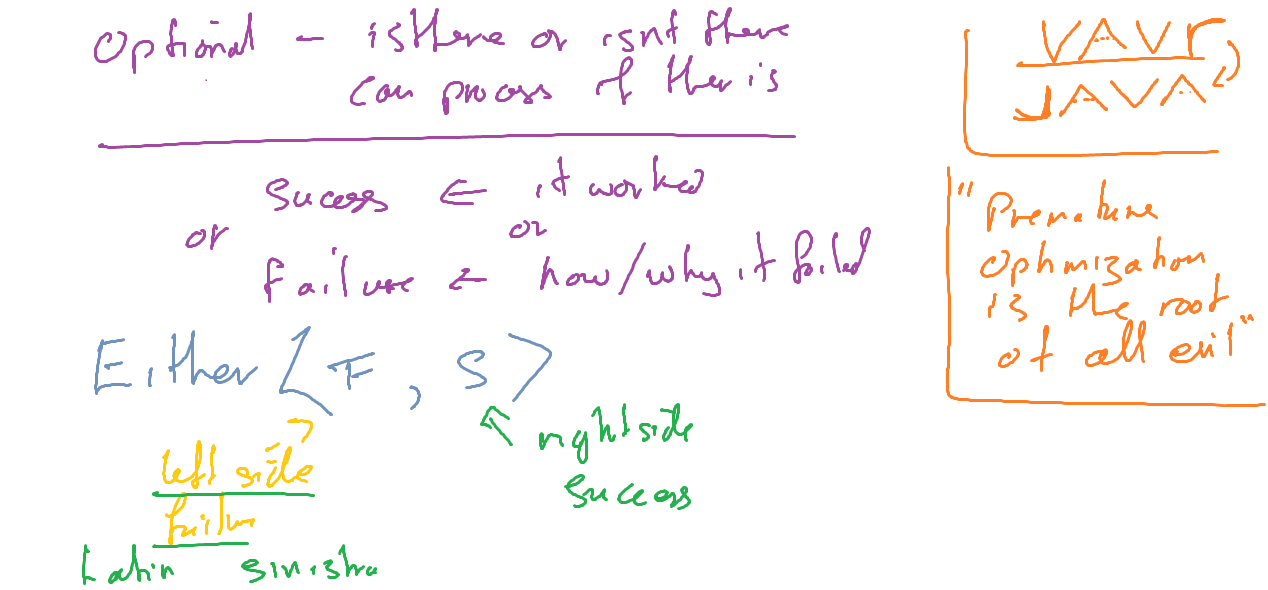 Optional - is there or isnt there
can process if ther is
Sucess ← it worked
or or
failure ← how/why it failed
Either <F, S>
left side
failure
Latin sinistra
right side
success
VAVr
JAVA
"Premature
Optimization
is the root
of all evil"